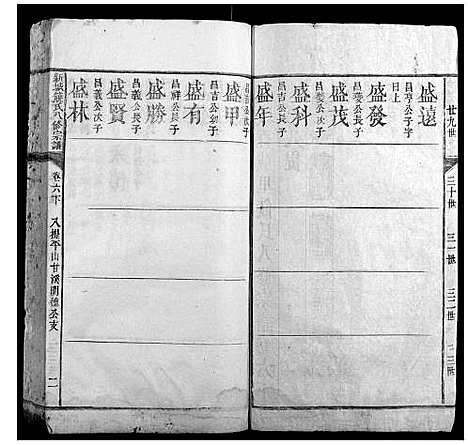 廿九世
三十世
三一世
三二世
三三世
盛遠
昌亨公子字
日上
盛發
昌燮公長子
盛茂
昌燮公次子
盛科
昌吉公長子
盛年
昌吉公次子
盛甲
昌吉公卯子
盛有
昌祥公長子
盛勝
昌義公長子
盛賢
昌義公次子
盛林
卷六下
又提平山廿溪開穗公支